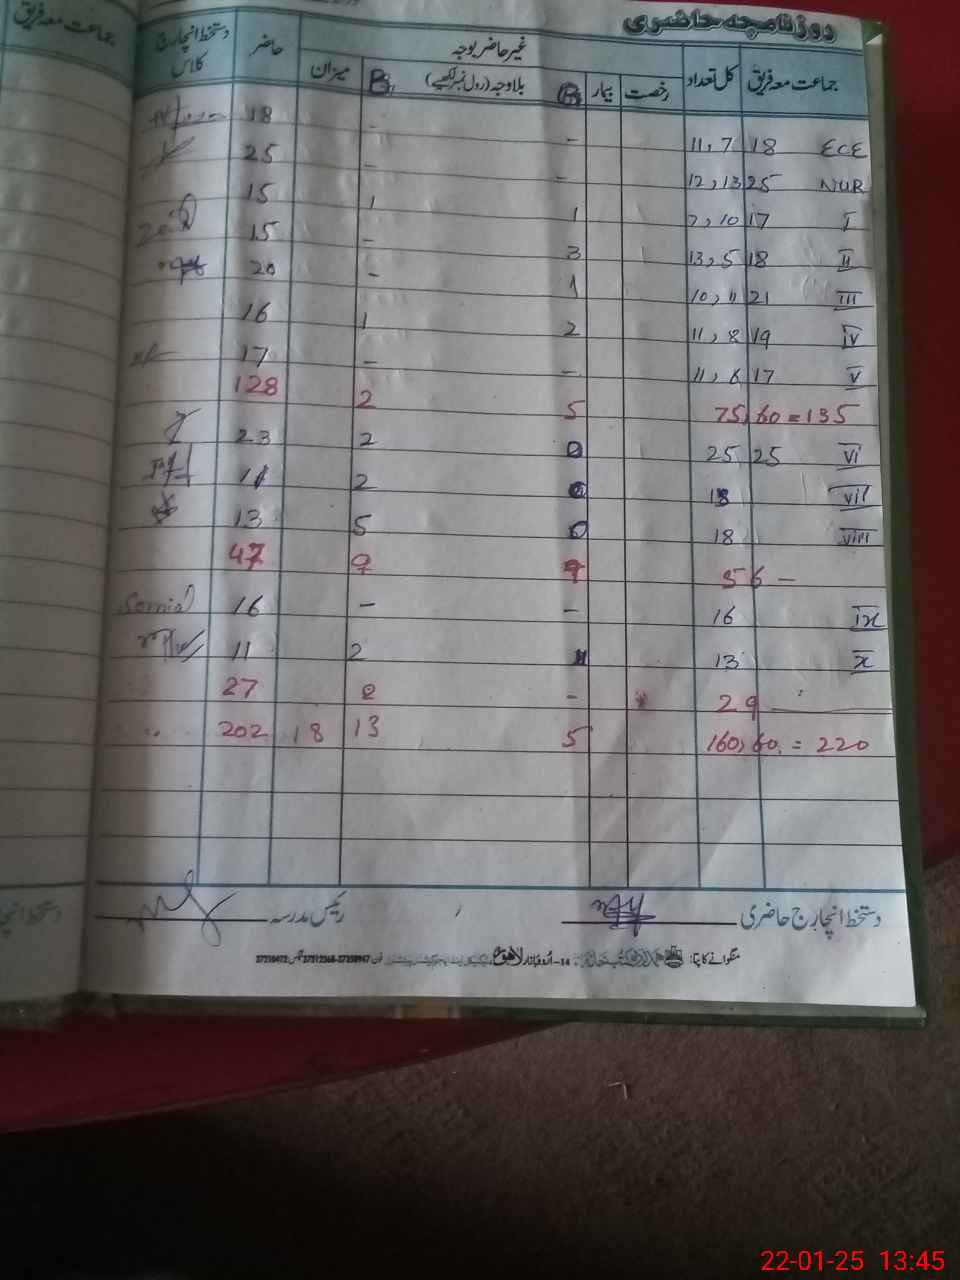 روزنامچہ حاضری
جماعت معہ فریق کل تعداد غیر حاضر بوجہ حاضر دستخط انچارج کلاس جماعت معہ فریق
رخصت بیمار G بلاوجہ (رول نمبر لکھیے) B میزان
ECE 18 11, 7 - - 18
NUR 25 12, 13 - - 25
I 17 7, 10 1 1 15
II 18 13, 5 3 - 15
III 21 10, 11 1 - 20
IV 19 11, 8 2 1 16
V 17 11, 6 - - 17
75, 60 = 135 5 2 128
VI 25 25 0 2 23
VII 2
VIII 18 0 5 13
56 - 9 47
IX 16 - - 16 Somia
X 13 2 11
29 - 2 27
160, 60. = 220 5 13 18 202
دستخط انچارج حاضری رئیس مدرسہ
منگوانے کا پتہ: 14-اُردو بازار لاہور
22-01-25 13:45